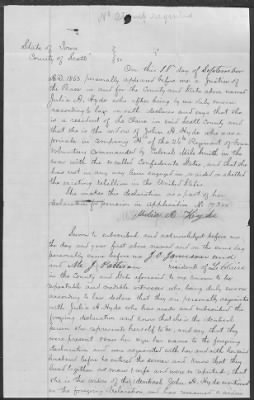 No Stamp required
State of Iowa }
County of Scott } SS
On this 18 day of September
A.D. 1863 personally appeared before me a Justice of
the Peace in and for the County and State above named
Julia A. Hyde who after being by me duly sworn
according to law on oath declares and says that she
is a resident of Le Claire in said Scott County and
that she is the widow of John H. Hyde who was a
private in Company "A" of the 26th Regiment of Iowa
Volunteers Commanded by Colonel Milo Smith in the
war with the so called Confederate States and that she
has not in any way been engaged in aided or abetted
the existing rebellion in the United States.
She makes this Declaration as a part of her
declaration for pension in application No
Julia A. Hyde
Sworn to subscribed and acknowledged before me
the day and year first above named and on the same day
personally came before me J. O. Jamerson and
J. Patterson resident of Le Claire
in the County and State aforesaid to me known to be
reputable and credible witnesses who being duly sworn
according to law declare that they are personally acquainted
with Julia A. Hyde who has made and subscribed the
foregoing declaration and know that she is the identical
person she represents herself to be and say that they
were present saw her sign her name to the foregoing
declaration and were acquainted with her and with her said
husband before he entered the service and know that they
lived together as man & wife and were so reputed, that
she is the widow of the identical John H. Hyde mentioned
in the foregoing declaration and has remained a widow